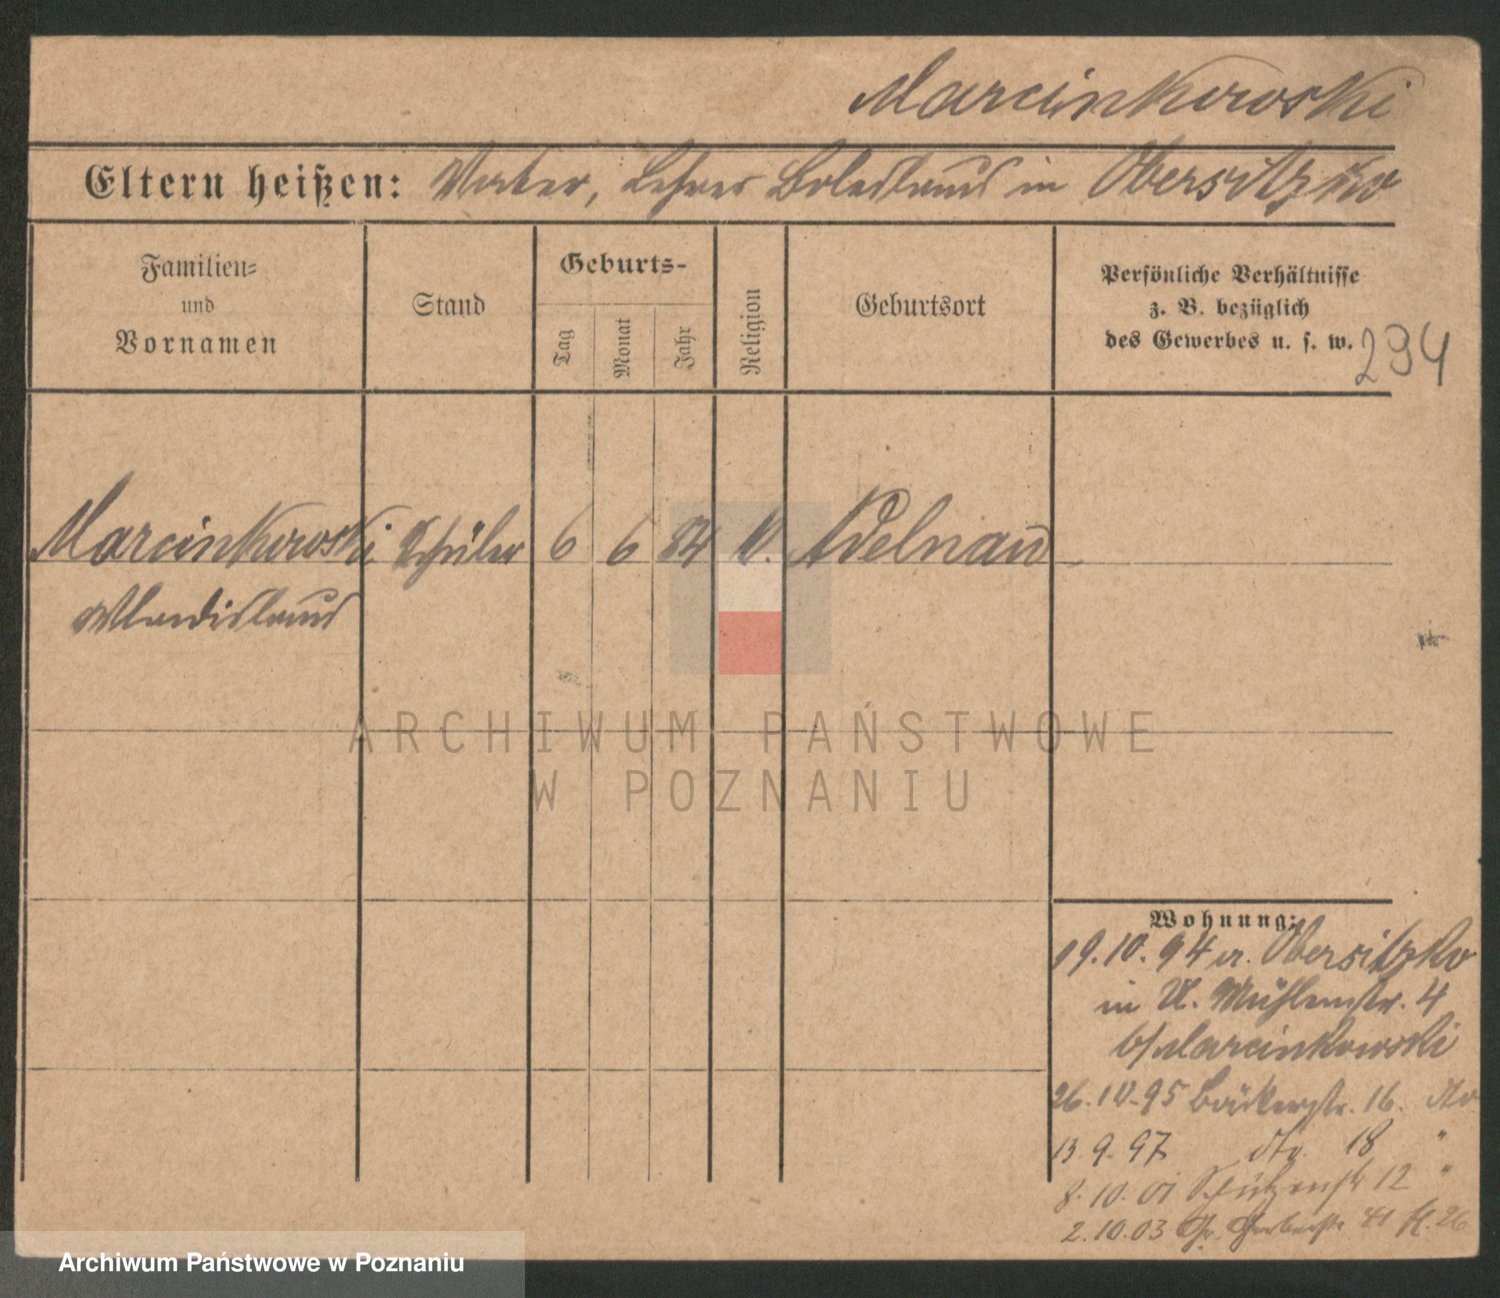 Marcinkowski
Eltern heißen: Vater, Lehrer Boleslaus in Obersitzko
Familien- und Vornamen
Stand
Geburts-
Tag
Monat
Jahr
Religion
Geburtsort
Persönliche Verhältnisse
z. B. bezüglich
des Gewerbes u. s. w.
294
Marcinkowski Schüler 6 6 84 Adelnau
Wladislaus
ARCHIWUM PAŃSTWOWE
W POZNANIU
Wohnung:
19.10.94 Obersitzko
in Mühlenstr. 4
b/Marcinkowski
26.10.95 Bäckerstr. 16. dto
13.9.97 dto. 18 "
8.10.01 Schützenstr 12 "
2.10.03 Gr. Gerberstr. 41
Archiwum Państwowe w Poznaniu